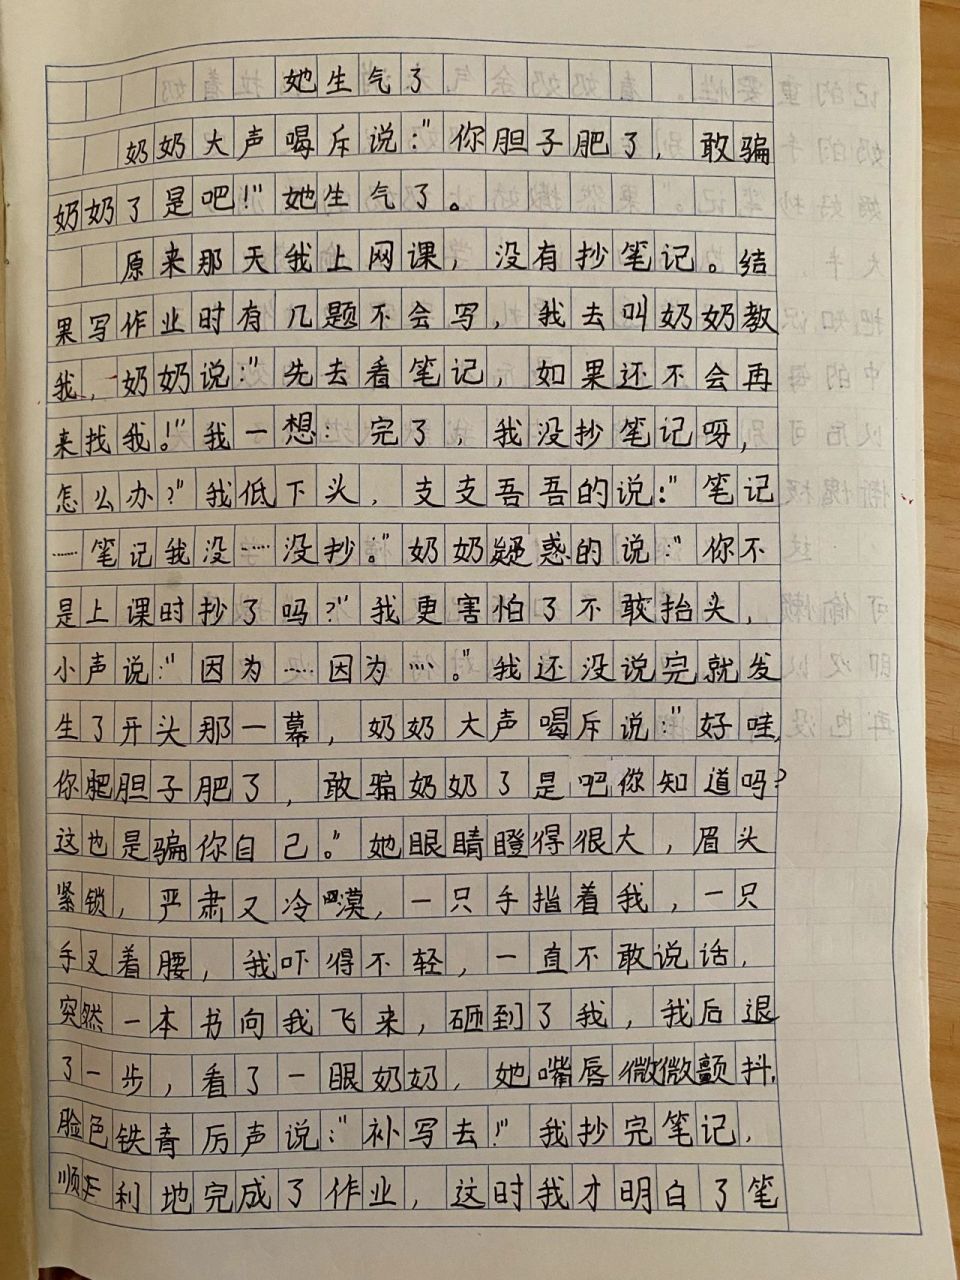 她生气了
奶奶大声喝斥说:"你胆子肥了，敢骗
奶奶了是吧!"她生气了。
原来那天我上网课，没有抄笔记。结
果写作业时有几题不会写，我去叫奶奶教
我，奶奶说:"先去看笔记，如果还不会再
来找我!"我一想:完了，我没抄笔记呀，
怎么办?"我低下头，支支吾吾的说:"笔记
……笔记我没……没抄。"奶奶疑惑的说:"你不
是上课时抄了吗?"我更害怕了不敢抬头，
小声说:"因为……因为……。"我还没说完就发
生了开头那一幕，奶奶大声喝斥说:"好哇，
你肥胆子肥了，敢骗奶奶了是吧你知道吗?
这也是骗你自己。"她眼睛瞪得很大，眉头
紧锁，严肃又冷漠，一只手指着我，一只
手叉着腰，我吓得不轻，一直不敢说话，
突然一本书向我飞来，砸到了我，我后退
了一步，看了一眼奶奶，她嘴唇微微颤抖，
脸色铁青厉声说:"补写去!"我抄完笔记，
顺利地完成了作业，这时我才明白了笔